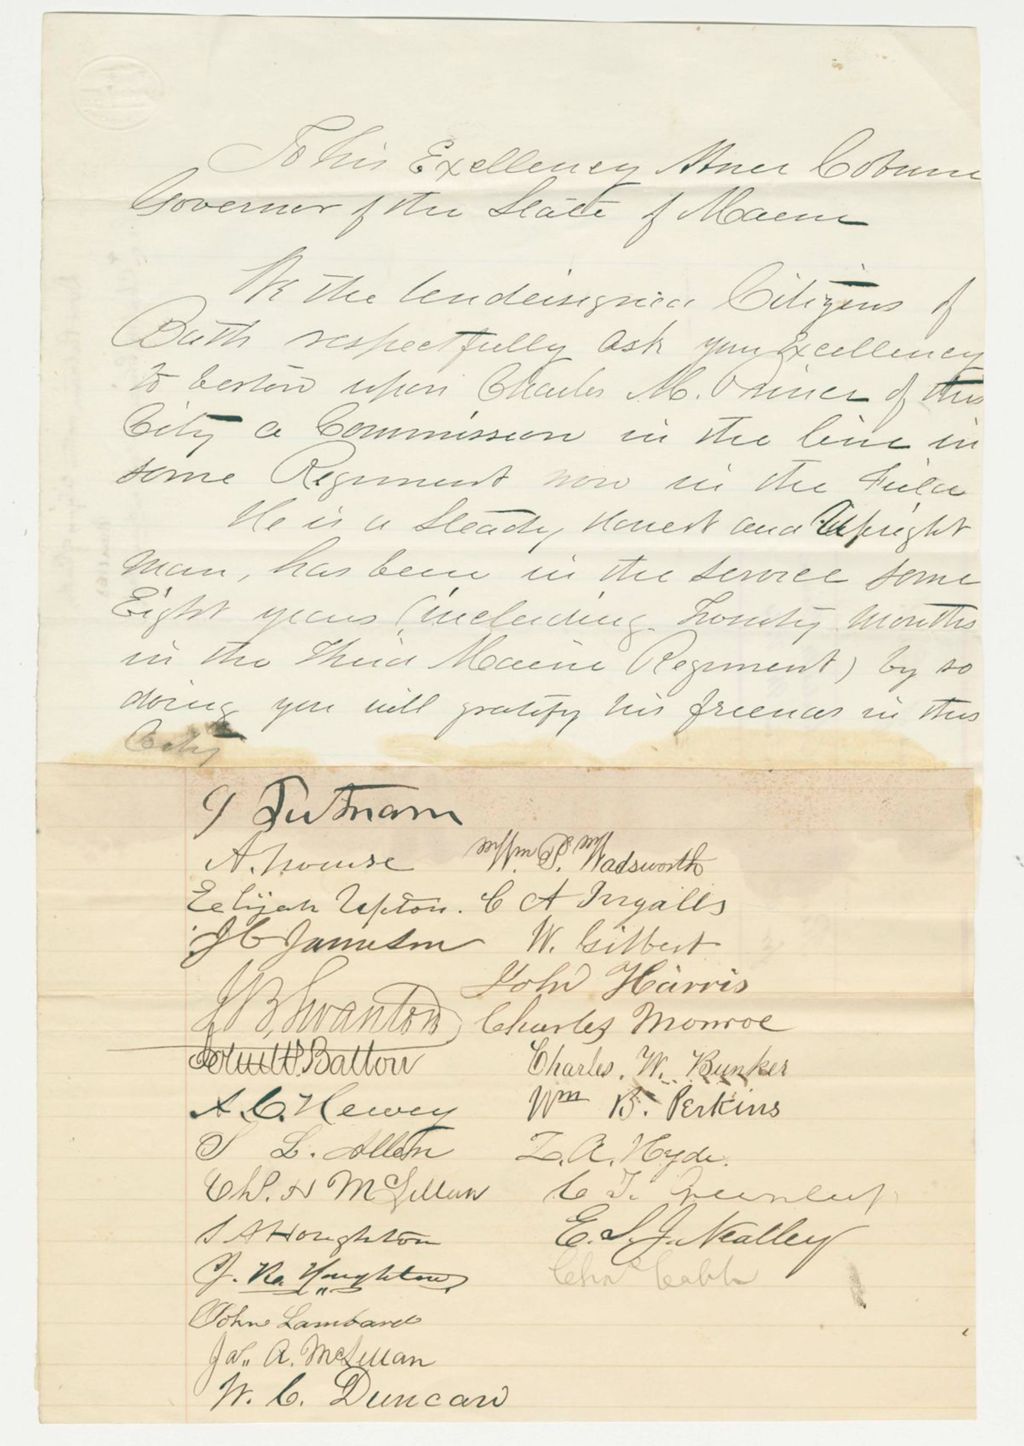 To his Exellency Abner Coburn
Governor of the State of Maine
We the Undersigned Citizens of
Bath respectfully ask your Excellency
to bestow upon Charles M. Prince of this
City a Commission in the line in
some Regiment now in the Field
He is a Steady, Honest and Upright
man, has been in the service some
Eight years (including Twenty months
in the Third Maine Regiment) by so
doing you will gratify his friends in this
City
Putnam
A. House
Wm. P. Wadsworth
Elijah Upton.
C A Ingalls
J C Jameson
W. Gilbert
John Harris
J B Swanton
Charles Monroe
John H. Batton
Charles. W. Bunker
A. C. Hewey
Wm B. Perkins
S L. Allen
Z. A. Hyde.
Chs. H McLellan
C T. Greenleaf
S A Houghton
E. S. J. Nealley
J. R. Houghton
Chas Cobb
John Lambard
Jas. A. McLellan
W. C. Duncan